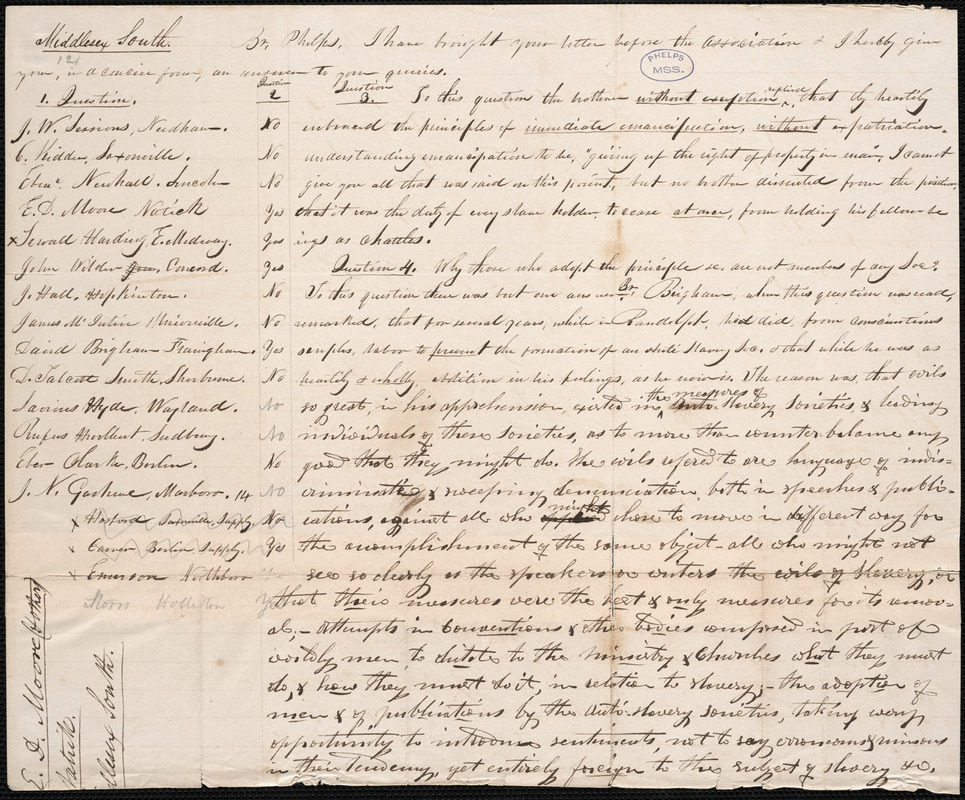 Middlesex South.
Br. Phelps, I have brought your letter before the Association & I hereby give
you, in a concise form, an answer to your queries.
PHELPS
MSS.
12
1. Question.
Question
2
Question
3. To this question the brethren without exception replied, that they heartily
J. W. Sessions, Needham. No embraced the principles of immediate emancipation, without expatriation.
C. Kidder, Saxonville. No understanding emancipation to be, "giving up the right of property in man", I cannot
Eben. Newhall. Lincoln No give you all that was said on this point, but no brother dissented from the position,
E. D. Moore Natick Yes that it was the duty of every slave holder, to cease at once, from holding his fellow be
x Sewall Harding E. Medway. Yes ings as chattles.
John Wilder Concord. Yes Question 4. Why those who adopt the principle &c. are not members of any Soc?
J. Hall. Hopkinton. No To this question there was but one answer. Br. Brigham, when this question was read,
James McIntire Unionville. No remarked, that for several years, while in Randolph, he did, from conscientious
David Brigham Framingham. Yes scruples, labor to prevent the formation of an Anti Slavery Soc. & that while he was as
D. Talcott Smith, Sherburne. No heartily & wholly, abolition in his feelings, as he now is. The reason was, that evils
Lavius Hyde, Wayland. No so great, in his apprehension, existed in the measures of Anti Slavery Societies, & leading
Rufus Hurlbut Sudbury. No individuals of these Societies, as to more than counter balance any
Eber Clarke, Berlin. No good that they might do. The evils refered to are language of indis-
J. N. Goodhue, Marboro. 14 No criminate & sweeping denunciation, both in speeches & publi-
x Hosford Saxonville, Supply. No cations, against all who might chose to move in different way for
x Carver Berlin, Supply. Yes the accomplishment of the same object - all who might not
x Emerson Northboro see so clearly as the speakers or writers the evils of slavery, or
Morss Holliston Yes that their measures were the best & only measures for its remov-
al. - Attempts in Conventions & other bodies composed in part of
worldly men, to dictate to the ministry & Churches what they must
do, & how they must do it, in relation to slavery; - the adoption of
men & of publications by the Anti-slavery societies, taking every
opportunity to introduce sentiments, not to say erroneous & ruinous
in their tendency, yet entirely foreign to the subject of slavery &c.
E. D. Moore (brother)
Natick.